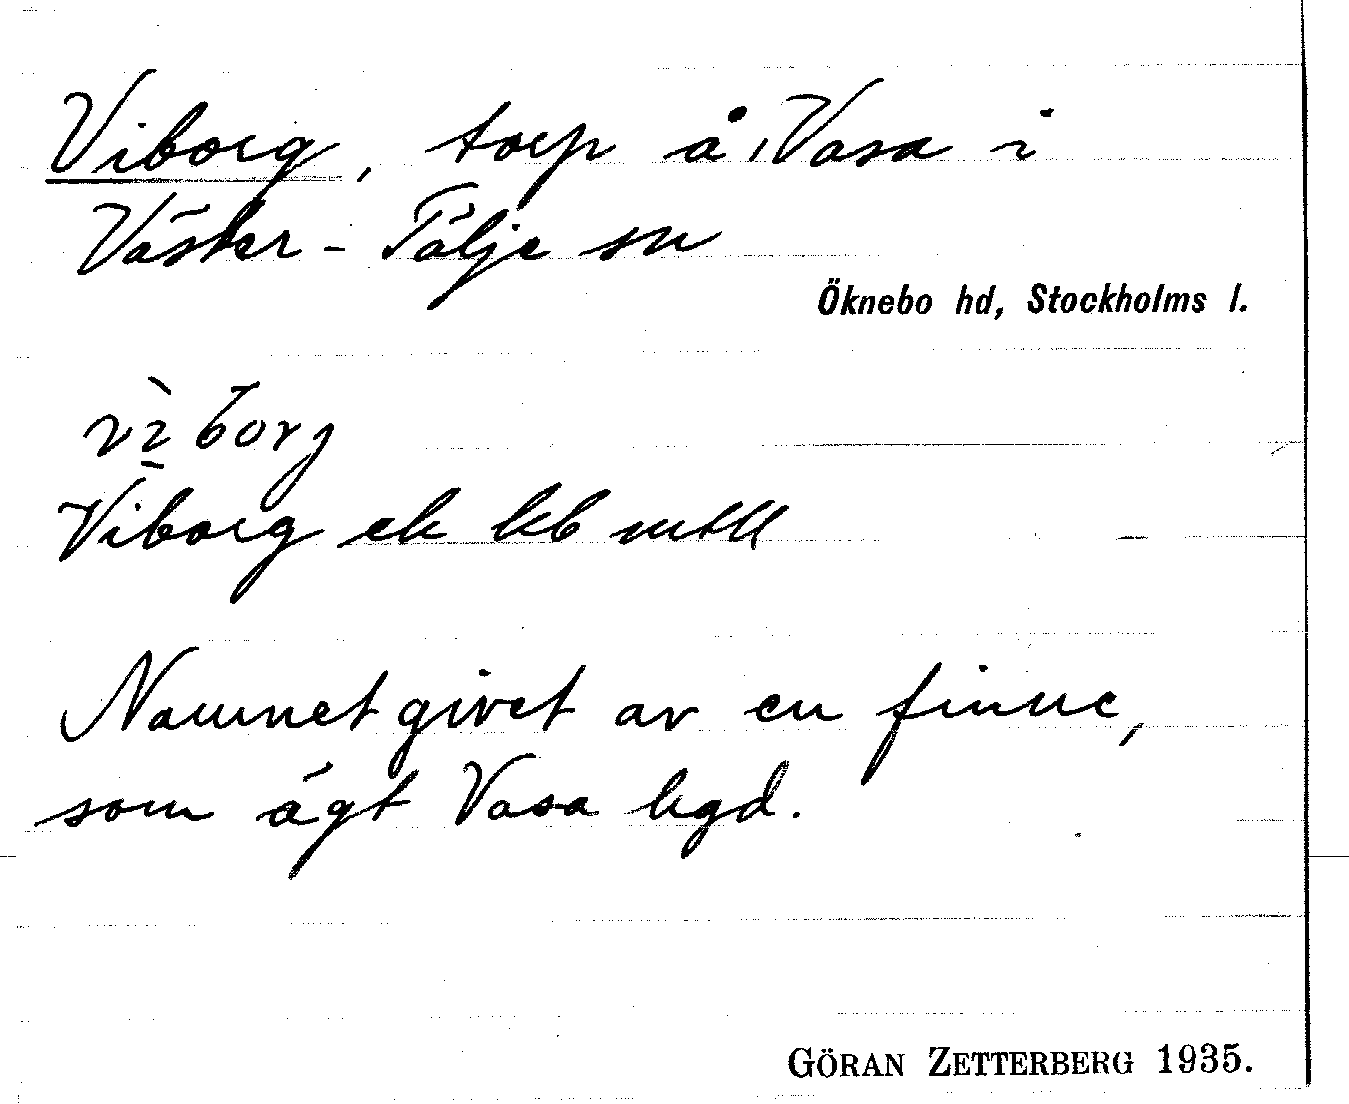 Viborg, torp å Vasa i
Väster-Tälje sn
Öknebo hd, Stockholms l.
vìborj
Viborg ek kb mtll
Namnet givet av en finne,
som ägt Vasa hgd.
GÖRAN ZETTERBERG 1935.